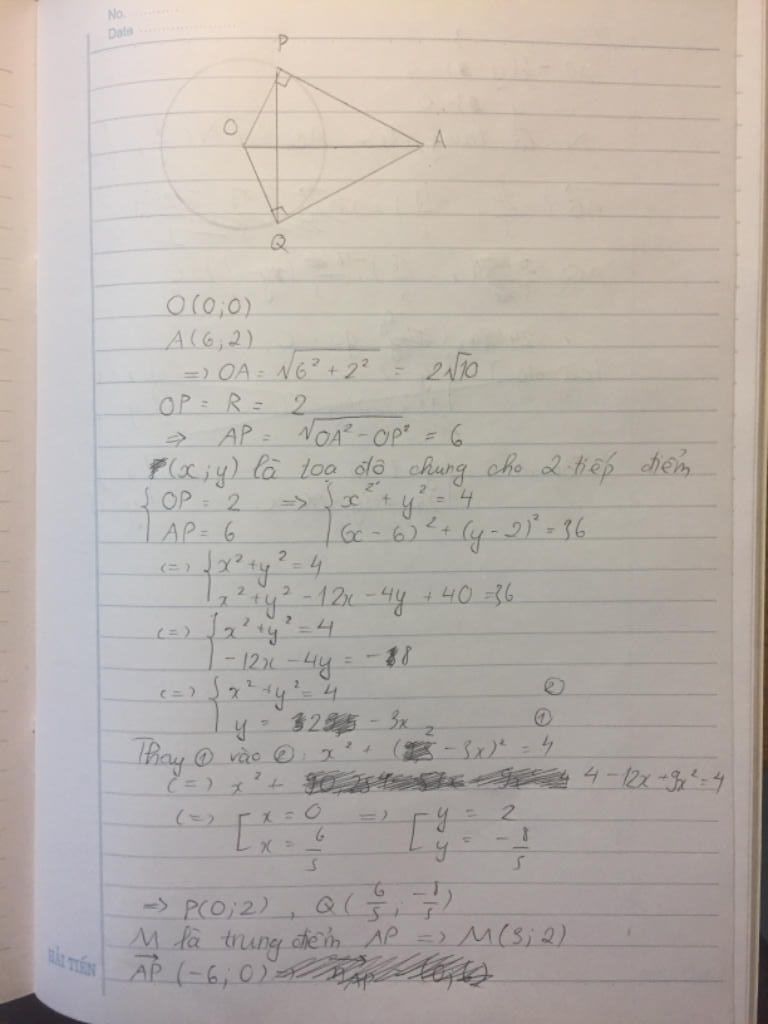 No.
Date
P
O
A
Q
O(0;0)
A(6;2)
=> OA = √(6² + 2²) = 2√10
OP = R = 2
=> AP = √(OA² - OP²) = 6
(x;y) là toạ độ chung cho 2 tiếp điểm
{ OP = 2 => { x² + y² = 4
{ AP = 6 { (x - 6)² + (y - 2)² = 36
<=> { x² + y² = 4
{ x² + y² - 12x - 4y + 40 = 36
<=> { x² + y² = 4
{ -12x - 4y = -8
<=> { x² + y² = 4 ②
{ y = 2 - 3x ①
Thay ① vào ②: x² + (2 - 3x)² = 4
<=> x² + 4 - 12x + 9x² = 4
<=> [ x = 0 => [ y = 2
[ x = 6/5 [ y = -8/5
=> P(0;2), Q(6/5; -8/5)
M là trung điểm AP => M(3;2)
AP→ (-6;0)
HẢI TIẾN